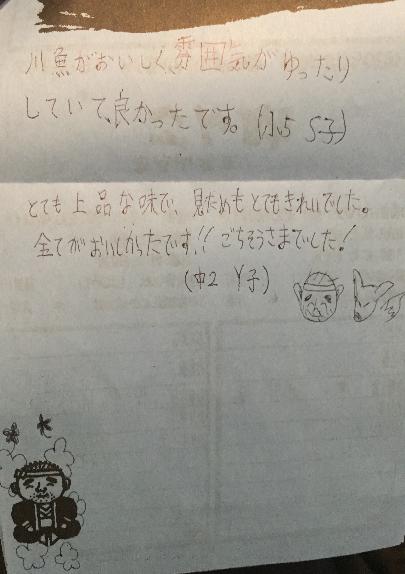 川魚がおいしく、雰囲気がゆったり
していて、良かったです。(小5 S子)
とても上品な味で、見ためもとてもきれいでした。
全てがおいしかったです!! ごちそうさまでした!
(中2 Y子)